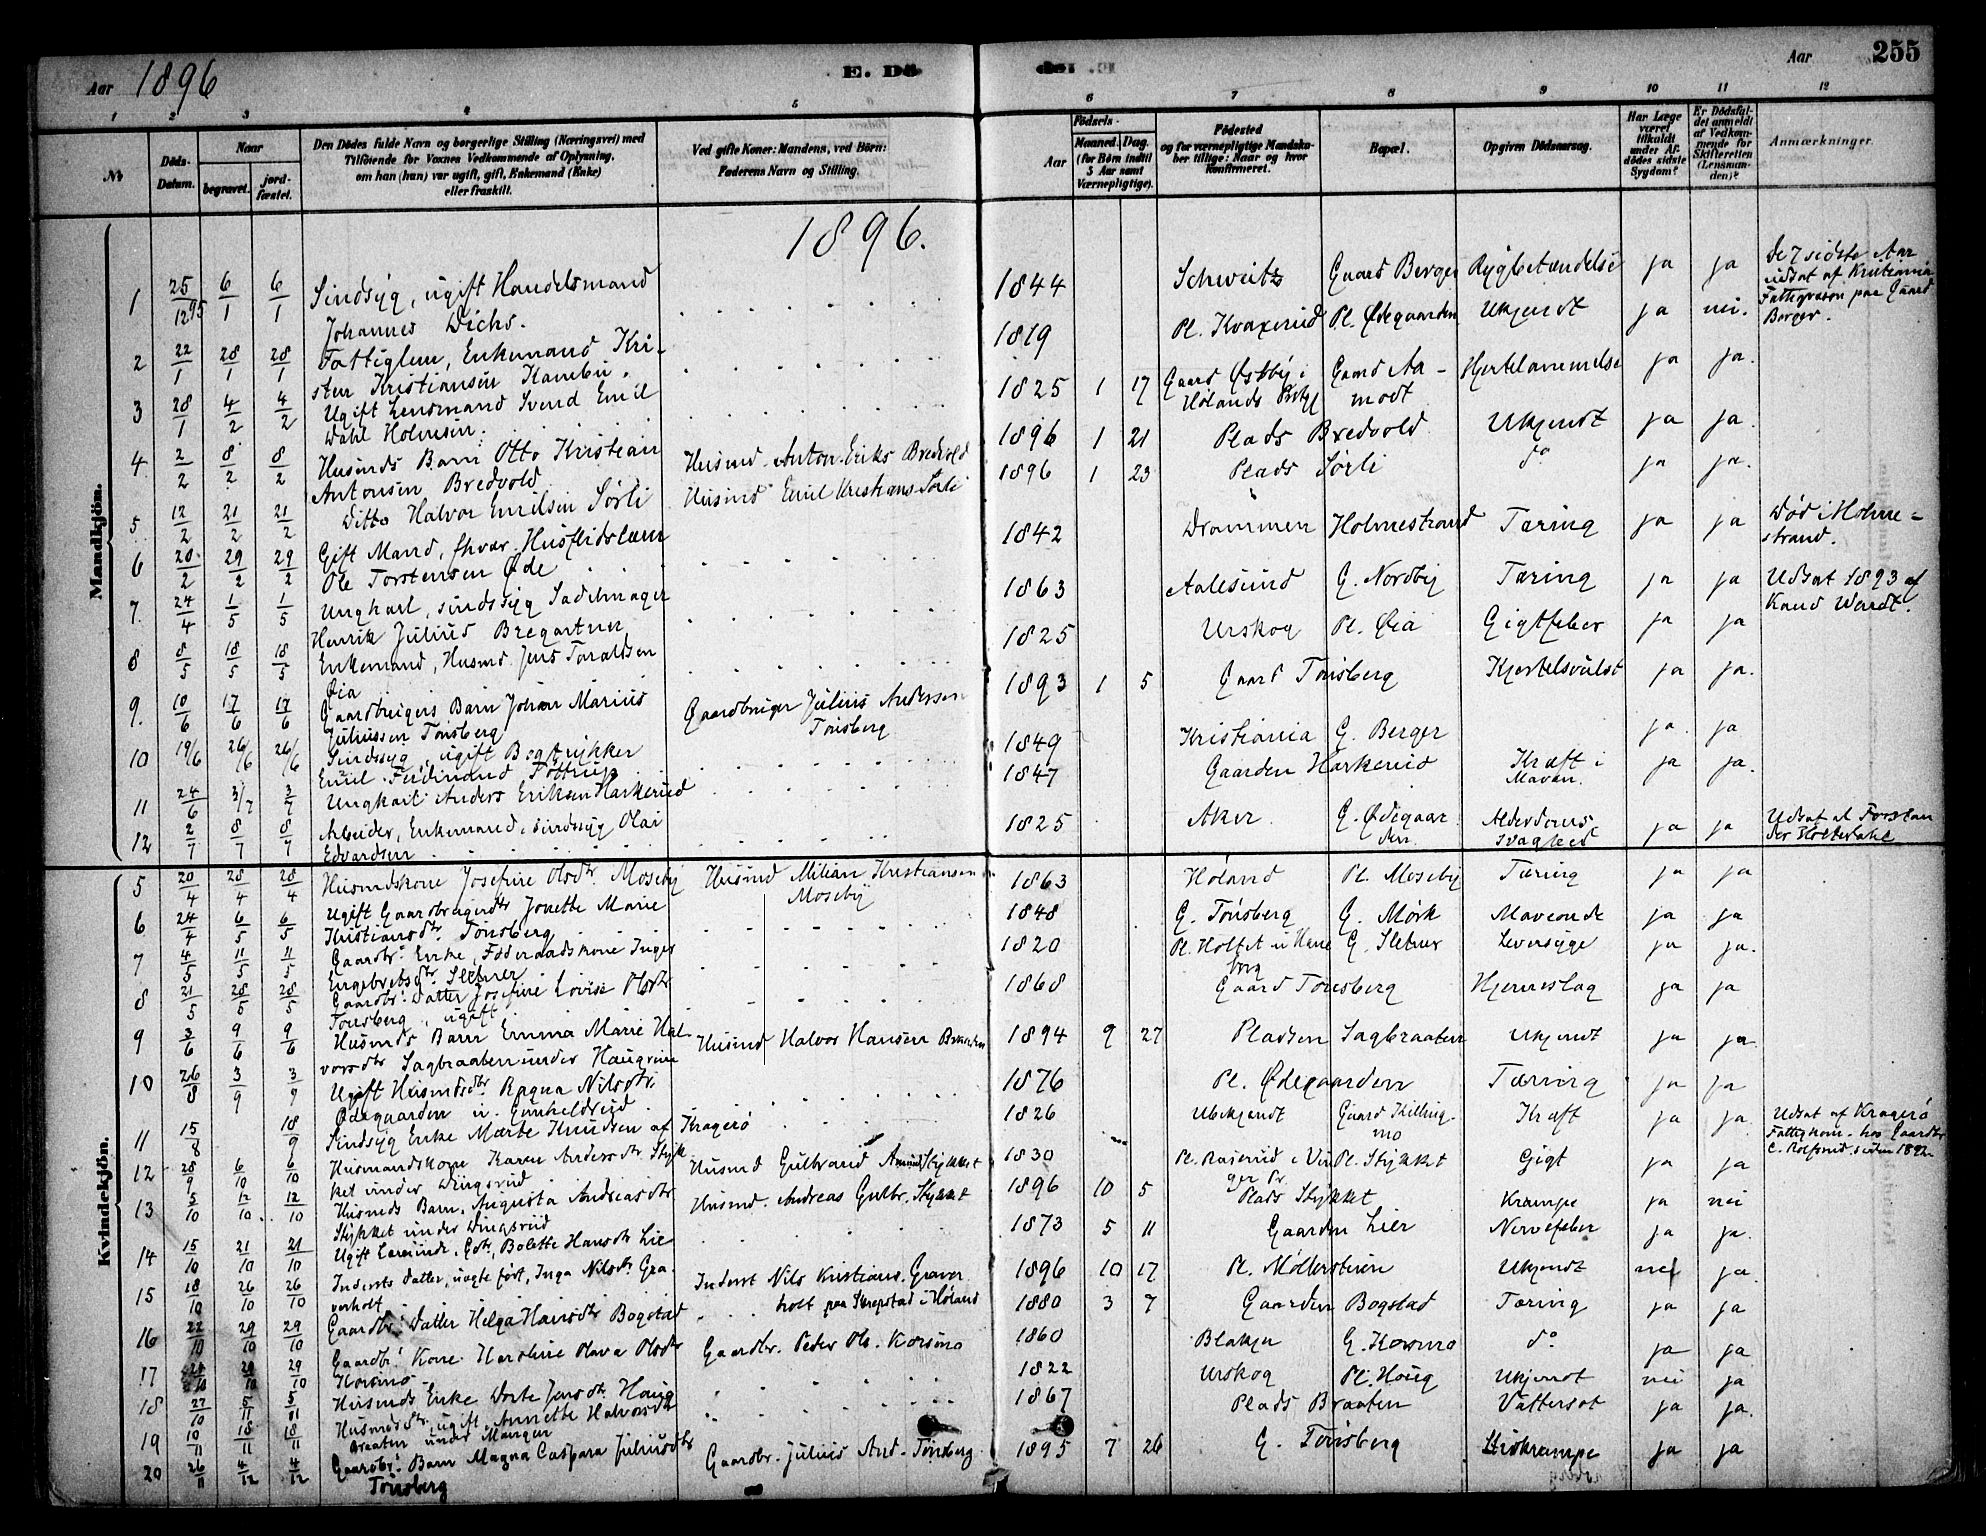 Aar 1896
E. Dö
Aar 255
1 2 3 4 5 6 7 8 9 10 11 12
№
Döds-Datum.
Naar
begravet.
jordfæstet.
Den Dödes fulde Navn og borgerlige Stilling (Næringsvei) med
Tilföiende for Voxnes Vedkommende af Oplysning,
om han (hun) var ugift, gift, Enkemand (Enke)
eller fraskilt.
Ved gifte Koner: Mandens, ved Börn:
Faderens Navn og Stilling.
Födsels-
Aar
Maaned. Dag.
(for Börn indtil
5 Aar samt
Værnepligtige).
Födested
og for værnepligtige Mandskaber tillige: Naar og hvor
Konfirmeret.
Bopæl.
Opgiven Dödsaarsag.
Har Læge
været
tilkaldt
under Afdödes sidste
Sygdom?
Er Dödsfaldet anmeldt
af Vedkommende for
Skifteretten
(Lensmanden)?
Anmærkninger.
1896.
Mandkjön.
1 25/12 95 6/1 6/1 Sindsyg, ugift Handelsmand
Johannes Dichs. 1844 Schweitz Gaard Berger Rygbetændelse ja ja De 7 sidste Aar
udsat af Kristiania
Fattigvæsen paa Gaard
Berger.
2 22/1 28/1 28/1 Fattiglem, Enkemand Kristen Kristiansen 1819 Pl. Kvaxerud Pl. Ødegaarden Ukjendt ja nei.
3 28/1 4/2 4/2 Ugift Lensmand Svend Emil
Dahl Holmsen. 1825 1 17 Gaard Østby i
Hølands Prgj Gaard Aamodt Hjertelammelse ja ja.
4 2/2 8/2 8/2 Husmds Barn Otto Kristian
Antonsen Bredvold Husmd. Anton Eriks. Bredvold 1896 1 21 Plads Bredvold Ukjendt ja ja.
5 12/2 21/2 21/2 Ditto Halvor Emilsen Sørli Husmd Emil Kristians. Sørli 1896 1 23 Plads Sørli do ja ja.
6 20/2 29/2 29/2 Gift Mand, fhvær. Husflidslærer
Ole Torstensen Øde 1842 Drammen Holmestrand Tæring ja ja Død i Holmestrand.
7 24/4 1/5 1/5 Ungkarl, sindssyg Sadelmager
Henrik Julius Bregartner 1863 Aalesund G. Nordby Tæring ja ja Udsat 1893 af
Knud Wendt.
8 8/5 18/5 18/5 Enkemand, Husmd. Jens Taraldsen
Øia 1825 Urskog Pl. Øia Gigtfeber ja ja
9. 10/6 17/6 17/6 Gaardbrugers Barn Johan Marius
Juliussen Tonsberg Gaardbruger Julius Anderssen
Tonsberg 1893 1 5 Gaard Tonsberg Kjertelsvulst ja ja.
10 19/6 26/6 26/6 Sindssyg, ugift Bogtrykker
Emil Ferdinand Tottrup 1849 Kristiania G. Berger ja ja
11 24/6 3/7 3/7 Ungkarl Anders Eriksen Harkerud 1847 Gaarden Harkerud Kræft i
Maven. ja ja.
12 2/7 8/7 8/7 Arbeider, Enkemand, sindssyg Olai
Edvardsen 1825 Aker G. Ødegaarden. Alderdomssvaghed ja ja Udsat af Forstander
Kvindekjön.
5 20/4 28/4 28/4 Husmdskone Josefine Olsdtr. Moseby Husmd Milian Kristiansen
Moseby 1863 Høland Pl. Moseby Tæring ja ja
6 24/4 6/5 6/5 Ugift Gaardbrugerdtr Jonette Marie
Kristiansdtr. Tonsberg 1848 G. Tonsberg G. Mørk Maveonde ja ja
7 4/5 11/5 11/5 Gaardbr. Enke, Føderaadskone Inger
Engebretsdtr. Sletner 1820 Pl. Holtet u. Haneborg G. Sletner Leversyge ja ja.
8 21/5 28/5 28/5 Gaardbr. Datter Josefine Lovise Olsdtr
Tonsberg, ugift 1868 Gaard Tonsberg Hjerneslag ja ja
9 3/6 9/6 9/6 Husmds Barn Emma Marie Halvorsdtr Sagbraaten under Haugrim Husmd Halvor Hansen 1894 9 27 Pladsen Sagbraaten Ukjendt ja ja
10 26/8 3/9 3/9 Ugift Husmdsdtr Ragna Nilsdtr.
Ødegaarden u. Gunheldrud 1876 Pl. Ødegaarden Tæring ja ja
11 15/8 18/9 Sindsyg Enke Marte Knudsen af Kragerø 1826 Ubekjendt Gaard Killingmo Kræft ja ja Udsat af Kragerø
Fattigkom. hos Gaardbr
C. Rolfsrud siden 1892
12 28/9 6/10 6/10 Husmandskone Karen Andersdtr. Stykket under Dingsrud Husmd Gulbrand Amund. Stykket 1830 Pl. Rasierud i Pl. Stykket Gigt ja ja
13 5/10 12/10 12/10 Husmds Barn, Augusta Andreasdtr
Stykket under Dingsrud Husmd. Andreas Gulbr. Stykket 1896 10 5 Plads Stykket Krampe ja nei
14 15/10 21/10 21/10 Ugift Lærerinde, Gdtr, Bolette Hansdtr Lier 1873 5 11 Gaarden Lier Nervefeber ja ja.
15 18/10 26/10 26/10 Inderts Datter, uægte født, Inga Nilsdtr. Graverholt Inderst Nils Kristians. Graverholt paa Skrepstad i Høland 1896 10 17 Pl. Møllerstuen Ukjendt nei ja.
16 22/10 29/10 29/10 Gaardbr. Datter Helga Hansdtr Bogstad 1880 3 7 Gaarden Bogstad Tæring ja ja
17 29/10 29/10 Gaardbr. Kone Karoline Olava Olsdtr
Korsmo Gaardbr. Peder Ols. Korsmo 1860 Blakjer G. Korsmo do ja ja
18 27/10 5/11 5/11 Husmds Enke Dorte Jensdtr. Haug 1822 Urskog Pl. Haug Ukjendt nei ja
19 10/11 18/11 18/11 Husmdsdtr, ugift, Annette Halvorsdtr
Braaten under Mangen 1867 Plads Braaten Vattersot ja ja.
20 26/11 4/12 4/12 Gaardbr. Barn Magna Caspara Juliusdtr
Tonsberg Gaardbr. Julius And. Tonsberg 1895 7 26 G. Tonsberg ja ja